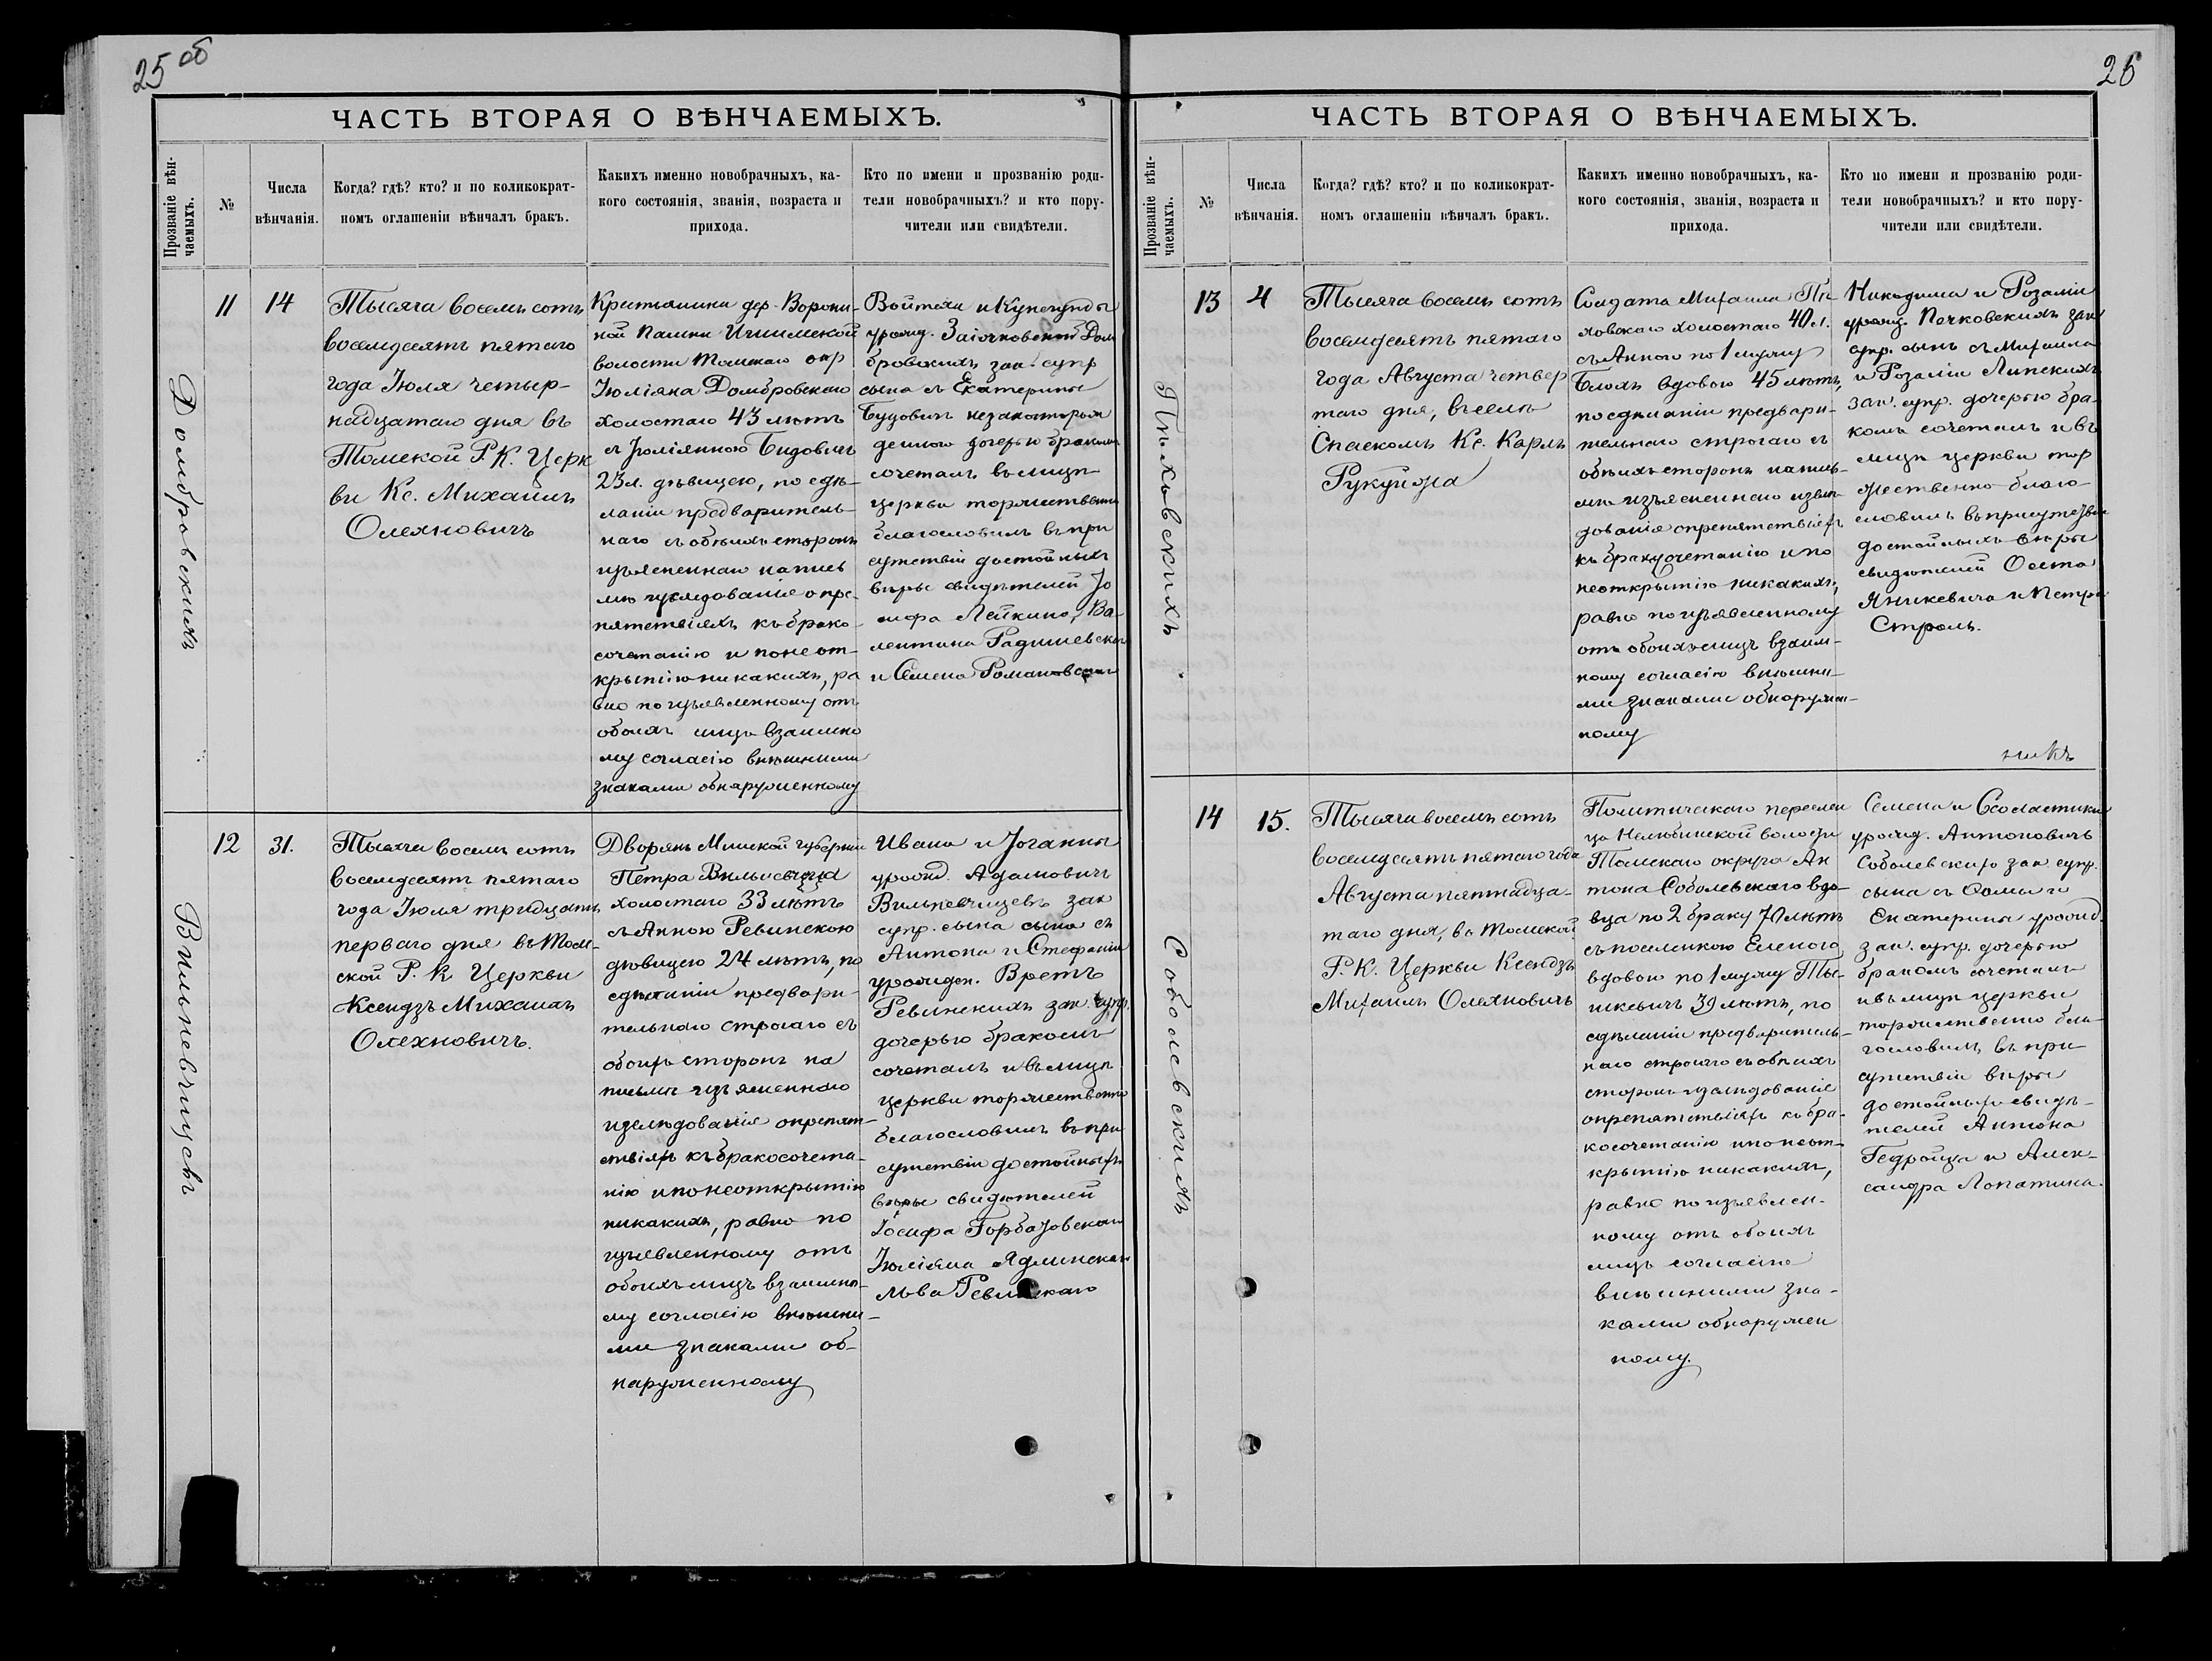 25 об
ЧАСТЬ ВТОРАЯ О ВѢНЧАЕМЫХЪ.
Прозваніе вѣн-
чаемыхъ.
№
Числа
вѣнчанія.
Когда? гдѣ? кто? и по коликократ-
номъ оглашеніи вѣнчалъ бракъ.
Какихъ именно новобрачныхъ, ка-
кого состоянія, званія, возраста и
прихода.
Кто по имени и прозванію роди-
тели новобрачныхъ? и кто пору-
чители или свидѣтели.
Домбровскихъ
11
14
Тысяча восемь сотъ
восемдесятъ пятаго
года Іюля четыр-
надцатаго дня въ
Томской Р. К. Церк
ви Кс. Михаилъ
Олехновичъ
Крестянина дер. Ворони-
ной Пашни Ишимской
волости Томскаго окр
Юліяна Домбровскаго
холостаго 43 лѣтъ
съ Юліянною Бидовичъ
23 л. дѣвицею, по сдѣ-
ланіи предваритель-
наго съ обѣихъ сторонъ
изъясненнаго на пись
мѣ изслѣдованія о пре-
пятствіяхъ къ брако
сочетанію и по неот-
крытію никакихъ, ра
вно по изъявленному отъ
обоихъ лицъ взаимно
му согласію внѣшними
знаками обнаруженному
Войтеха и Кунегунды
урожд. Дом
бровскихъ зак. супр
сына съ Екатерины
Будовичъ незаконорож
денною дочерью бракомъ
сочеталъ въ лицѣ
церкви торжественно
благословилъ въ при
сутствіи достойныхъ
вѣры свидѣтелей Іо
сифа Лейкино, Ва-
лентина Радишевскаго
и Семена Романовскаго
Вильневчицевъ
12
31.
Тысяча восемь сотъ
восемдесятъ пятаго
года Іюля тридцать
перваго дня въ Том-
ской Р. К Церкви
Ксендзъ Михаилъ
Олехновичъ.
Дворянъ Минской губерніи
Петра
холостаго 33 лѣтъ
съ Анною Ревинскою
дѣвицею 24 лѣтъ, по
сдѣланіи предвари-
тельнаго строгаго съ
обоихъ сторонъ на
письмѣ изъясненнаго
изслѣдованія о препят-
ствіяхъ къ бракосочета-
нію и по неоткрытію
никакихъ, равно по
изъявленному отъ
обоихъ лицъ взаимно-
му согласію внѣшни-
ми знаками об-
наруженному
Ивана и Іоганны
урожд. Адамовичъ
Вильневчицевъ зак
супр. сына сына съ
Антона и Стефаніи
урожден. Вретъ
Ревинскихъ зак. супр.
дочерью бракомъ
сочеталъ и въ лицѣ
церкви торжественно
благословилъ въ при
сутствіи достойныхъ
вѣры свидѣтелей
Іосифа Горбачовскаго
Юліяна Ядлинскаго
Льва Ревинскаго
26
ЧАСТЬ ВТОРАЯ О ВѢНЧАЕМЫХЪ.
Прозваніе вѣн-
чаемыхъ.
№
Числа
вѣнчанія.
Когда? гдѣ? кто? и по коликократ-
номъ оглашеніи вѣнчалъ бракъ.
Какихъ именно новобрачныхъ, ка-
кого состоянія, званія, возраста и
прихода.
Кто по имени и прозванію роди-
тели новобрачныхъ? и кто пору-
чители или свидѣтели.
13
4
Тысяча восемь сотъ
восемдесятъ пятаго
года Августа четвер
таго дня, въ селѣ
Спаскомъ Кс. Карлъ
Рукуйжа
Солдата Михаила
холостаго 40 л.
съ Анною по 1 мужу
вдовою 45 лѣтъ,
по сдѣланіи предвари-
тельнаго строгаго съ
обѣихъ сторонъ на пись-
мѣ изъясненнаго изслѣ-
дованія о препятствіяхъ
къ бракосочетанію и по
неоткрытію никакихъ,
равно по изъявленному
отъ обоихъ лицъ взаим-
ному согласію внѣшни-
ми знаками обнаружен-
ному
Никодима и Розаліи
урожд. Печковскихъ зак
супр. сынъ съ Михаила
и Розаліи Липскихъ
зак. супр. дочерью бра-
комъ сочеталъ и въ
лицѣ церкви тор
жественно благо-
словилъ въ присутствіи
достойныхъ вѣры
свидѣтелей
Яникевича и Петра
Строль.
Соболевскихъ
14
15.
Тысяча восемь сотъ
восемдесятъ пятаго года
Августа пятнадца-
таго дня, въ Томской
Р. К. Церкви Ксендзъ
Михаилъ Олехновичъ
Политическаго переселен
ца Нелюбинской волости
Томскаго округа Ан
тона Соболевскаго вдо-
вца по 2 браку 70 лѣтъ
съ поселенкою Еленою
вдовою по 1 мужу Ты-
шкевичъ 39 лѣтъ, по
сдѣланіи предваритель-
наго строгаго съ обѣихъ
сторонъ изслѣдованіе
о препятствіяхъ къ бра-
косочетанію и по неот-
крытію никакихъ,
равно по изъявлен-
ному отъ обоихъ
лицъ согласію
внѣшними зна-
ками обнаружен
ному.
Семена и Сколастики
урожд. Антоновичъ
Соболевскихъ зак супр.
сына съ и
Екатерины урожд.
зак. супр. дочерью
бракомъ сочеталъ
и въ лицѣ церкви
торжественно бла-
гословилъ въ при-
сутствіи вѣры
достойныхъ свидѣ-
телей Антона
Гедройца и Алек-
сандра Лопатина.